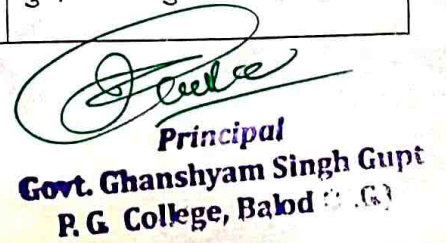 Principal
Govt. Ghanshyam Singh Gupt
P. G. College, Balod